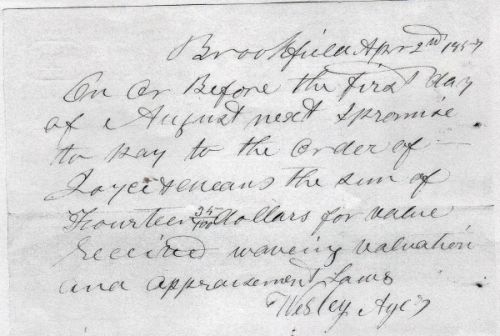 Brookfield Apr 2nd
On or Before the first day
of August next I promise
to pay to the order of
the sum of
Fourteen 35/100 dollars for value
Received waveing valuation
and appraisement Laws
Wesley